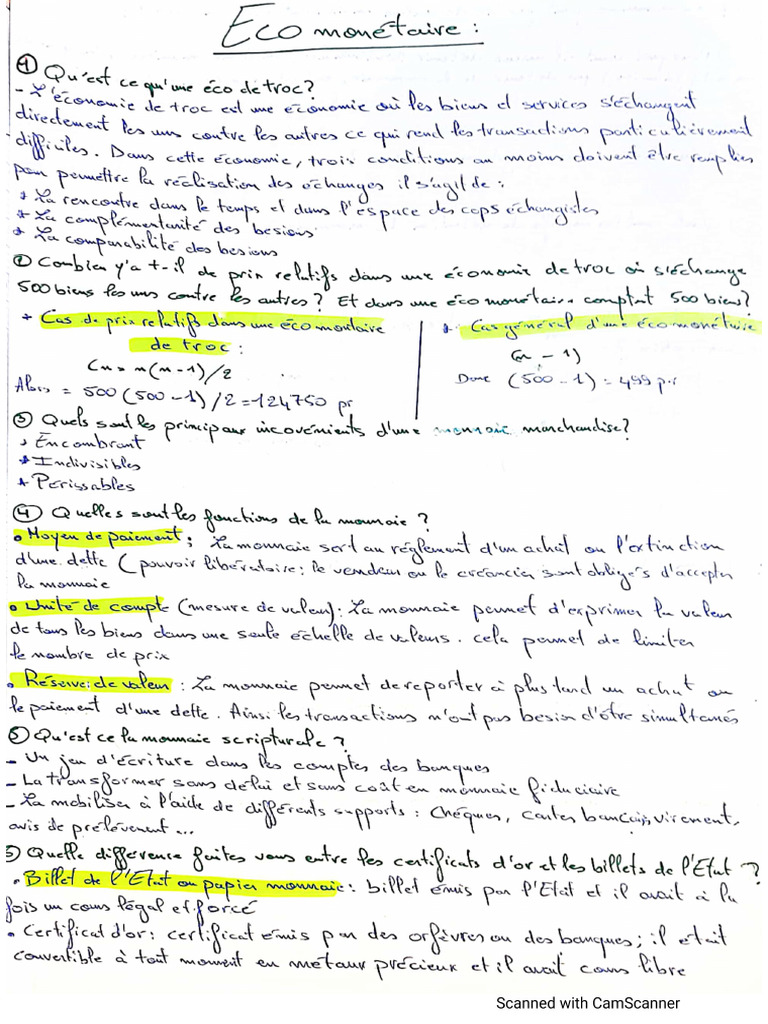 Eco monétaire :
① Qu'est ce qu'une éco de troc ?
- L'économie de troc est une économie où les biens et services s'échangent
directement les uns contre les autres ce qui rend les transactions particulièrement
difficiles. Dans cette économie, trois conditions au moins doivent être remplies
pour permettre la réalisation des échanges il s'agit de :
* La rencontre dans le temps et dans l'espace des cops échangistes
* La complémentarité des besions
* La comparabilité des besions
② Combien y'a t-il de prix relatifs dans une économie de troc où s'échange
500 biens les uns contre les autres ? Et dans une éco monétaire comptant 500 biens ?
* Cas de prix relatifs dans une éco montaire
de troc :
Cn = n(n-1)/2
Alors = 500(500-1)/2 = 124750 pr
* Cas général d'une éco monétaire
(n - 1)
Donc (500 - 1) = 499 p.r
③ Quels sont les principaux incovénients d'une monnaie marchandise ?
* Encombrant
* Indivisibles
* Périssables
④ Quelles sont les fonctions de la monnaie ?
• Moyen de paiement : La monnaie sert au réglement d'un achat ou l'extinction
d'une dette (pouvoir libératoire : le vendeur ou le créancier sont obligés d'accepter
la monnaie
• Unité de compte (mesure de valeur) : La monnaie permet d'exprimer la valeur
de tous les biens dans une seule échelle de valeurs. cela permet de limiter
le nombre de prix
• Réserve de valeur : La monnaie permet de reporter à plus tard un achat ou
le paiement d'une dette. Ainsi les transactions n'ont pas besion d'être simultanés
⑤ Qu'est ce la monnaie scripturale ?
- Un jeu d'écriture dans les comptes des banques
- La transformer sans délai et sans coût en monnaie fiduciaire
- La mobiliser à l'aide de différents supports : Chèques, cartes bancaires, virement,
avis de prélévement ...
Quelle différence faites vous entre les certificats d'or et les billets de l'Etat ?
• Billet de l'Etat ou papier monnaie : billet émis par l'Etat et il avait à la
fois un cours légal et forcé
• Certificat d'or : certificat émis par des orfèvres ou des banques ; il était
convertible à tout moment en métaux précieux et il avait cours libre
Scanned with CamScanner